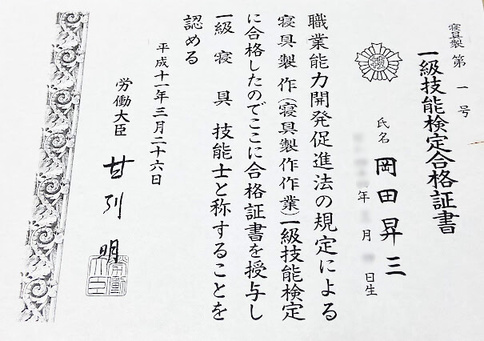 寝具製 第一号
一級技能検定合格証書
氏名 岡田昇三
年 月 日生
職業能力開発促進法の規定による
寝具製作(寝具製作作業)一級技能検定
に合格したのでここに合格証書を授与し
一級 寝具 技能士と称することを
認める
平成十一年三月二十六日
労働大臣 甘利 明